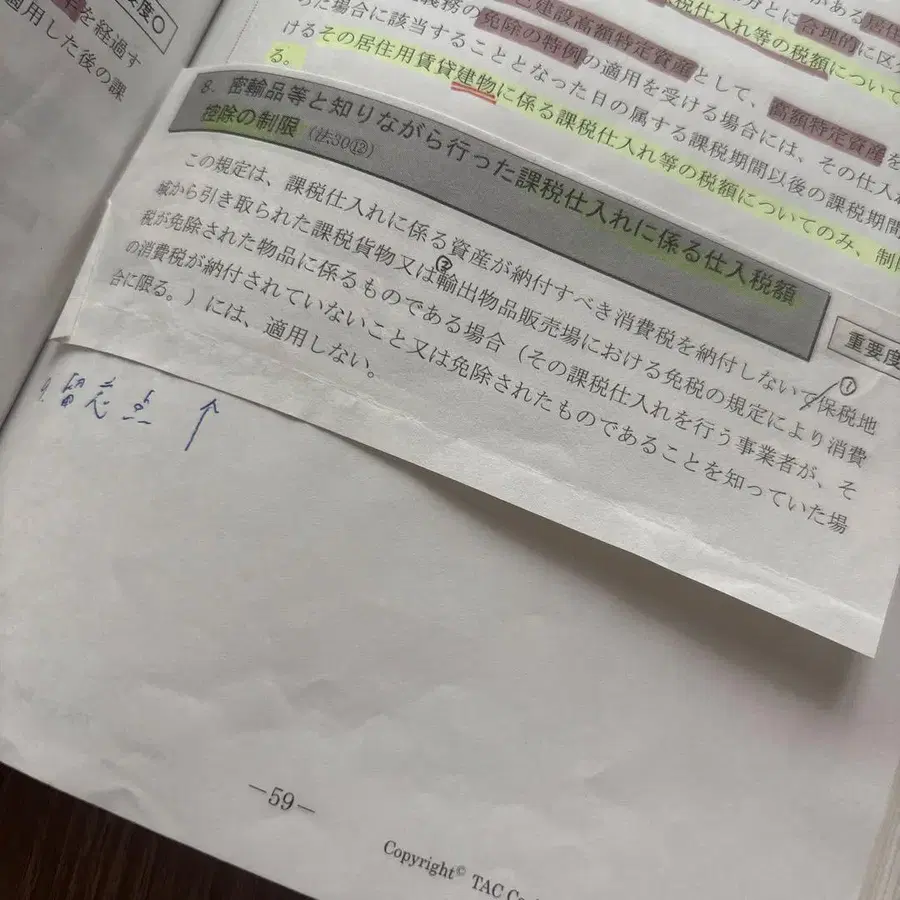 度○
を経過す
適用した後の課
税仕入れ等の税額について
合理的に区分
己建設高額特定資産として、
免除の特例の適用を受ける場合には、その仕入れ
高額特定資産を
た場合に該当することとなった日の属する課税期間以後の課税期間
けるその居住用賃貸建物に係る課税仕入れ等の税額についてのみ、制限
る。
8．密輸品等と知りながら行った課税仕入れに係る仕入税額
控除の制限（法30⑫）
重要度
この規定は、課税仕入れに係る資産が納付すべき消費税を納付しないで①保税地
域から引き取られた課税貨物又は②輸出物品販売場における免税の規定により消費
税が免除された物品に係るものである場合（その課税仕入れを行う事業者が、そ
の消費税が納付されていないこと又は免除されたものであることを知っていた場
合に限る。）には、適用しない。
9. 留意点 ↑
－59－
Copyright© TAC